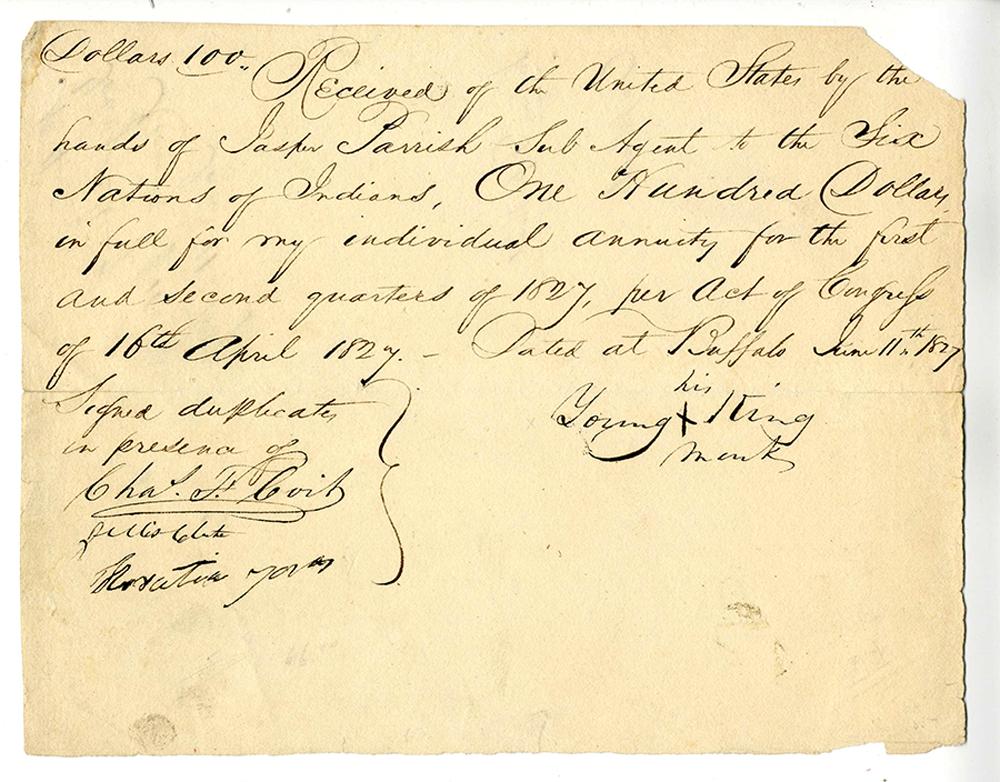 Dollars 100.,
Received of the United States by the
hands of Jasper Parrish Sub Agent to the Six
Nations of Indians, One Hundred Dollars,
in full for my individual annuity for the first
and second quarters of 1827, per Act of Congress
of 16th April 1827. – Dated at Buffalo June 11th 1827
his
Young X King
mark
Signed duplicates
in presence of
Chas. F. Coit
Horatio